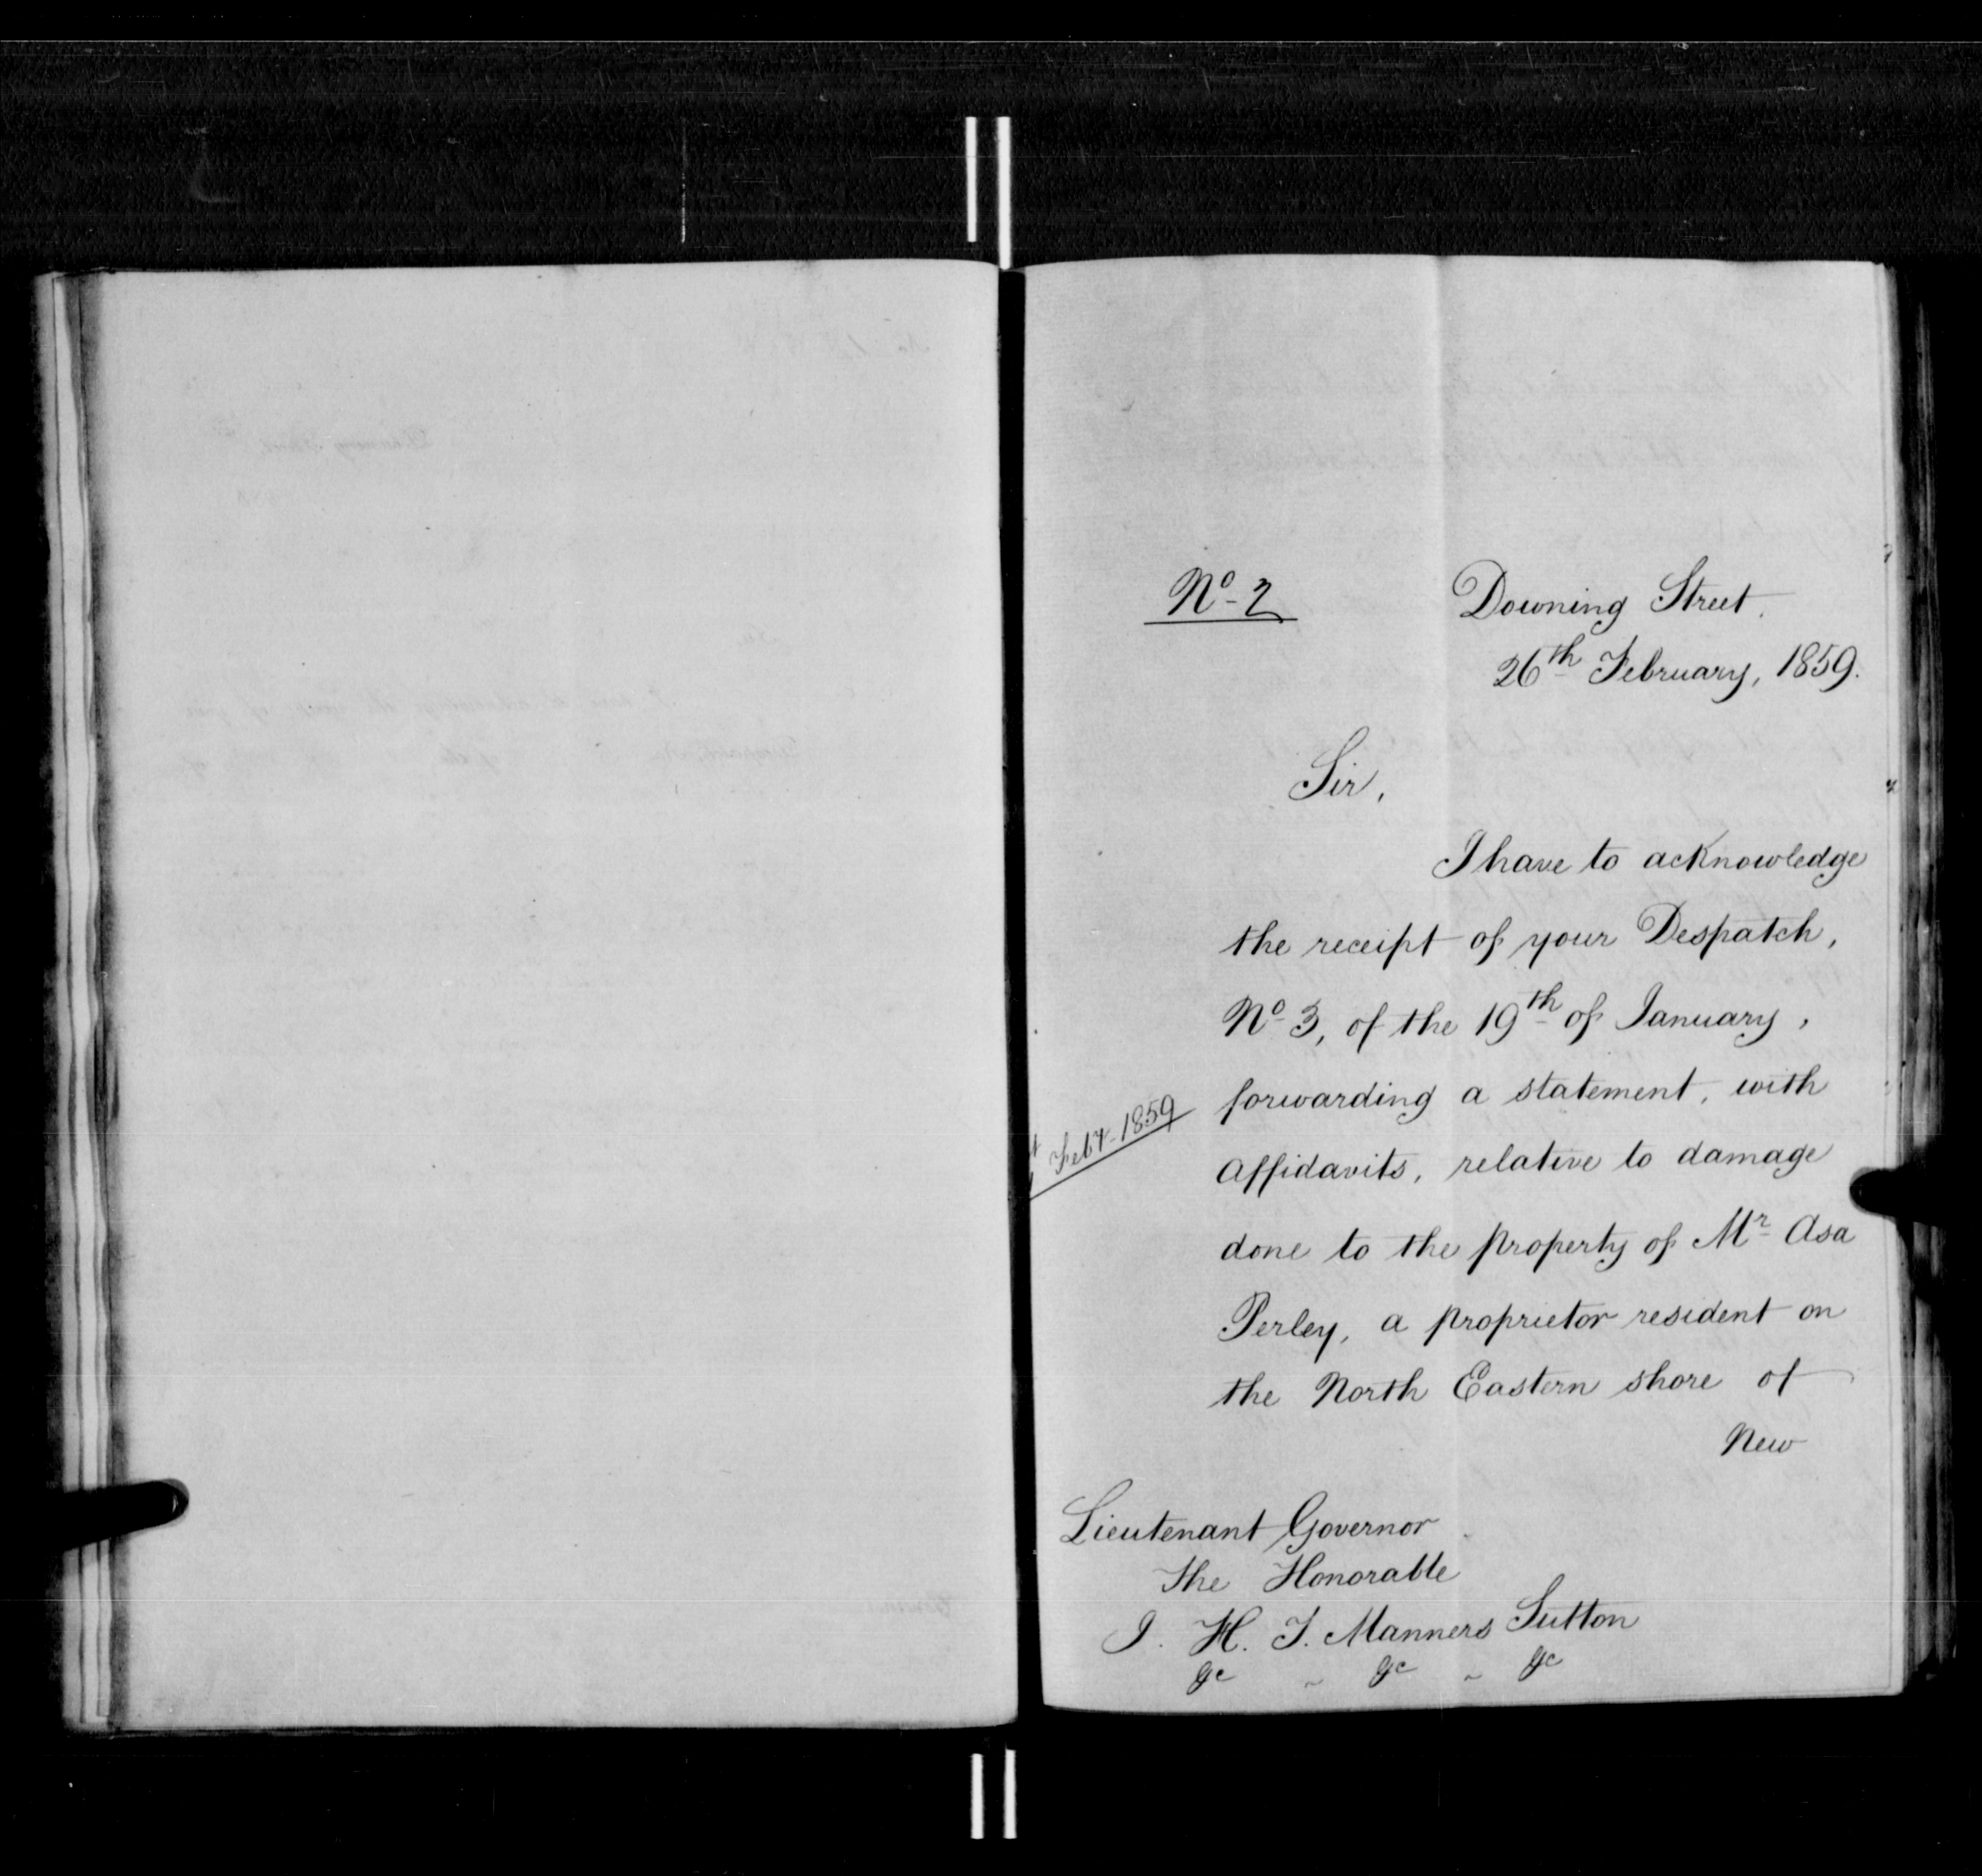 No 2
Downing Street.
26th February, 1859.
Sir,
I have to acknowledge
the receipt of your Despatch,
No 3, of the 19th of January,
forwarding a statement, with
Feby 1859
Affidavits, relative to damage
done to the property of Mr Asa
Perley, a proprietor resident on
the North Eastern shore of
New
Lieutenant Governor
The Honorable
J. H. T. Manners Sutton
&c &c &c